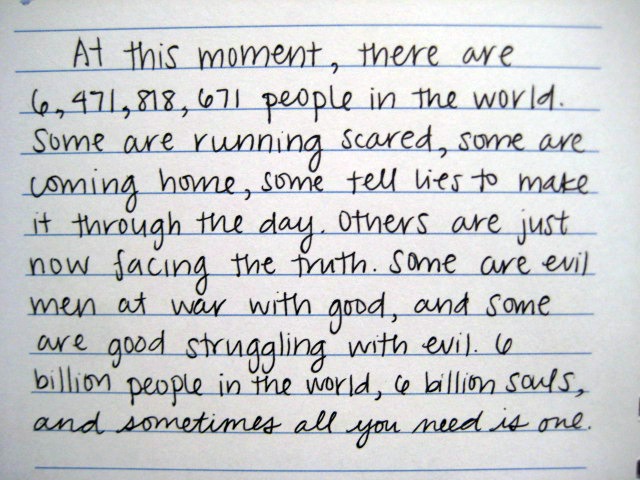 At this moment, there are
6,471,818,671 people in the world.
Some are running scared, some are
coming home, some tell lies to make
it through the day. Others are just
now facing the truth. Some are evil
men at war with good, and some
are good struggling with evil. 6
billion people in the world, 6 billion souls,
and sometimes all you need is one.